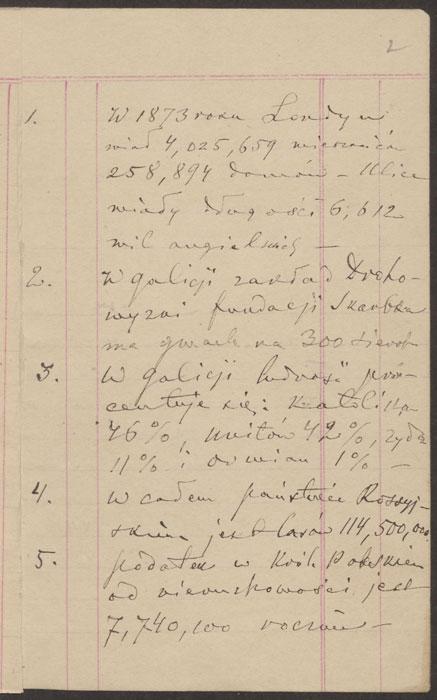 2
1. W 1873 roku Londyn
miał 4,025,659 mieszkańców
258,894 domów – Ulice
miały długości 6,612
mil angielskich –
2. W galicji zakład Droho-
wyzki fundacji Skarbka
ma gmach na 300 sierot
3. W galicji ludność pro-
centuje się: Katolicka
46%, unitów 42%, żydów
11% i ormian 1% –
4. W całem państwie Rossyj-
skim jest lasów 114,500,000
5. podatek w Król. Polskiem
od nieruchomości jest
7,740,100 rocznie –